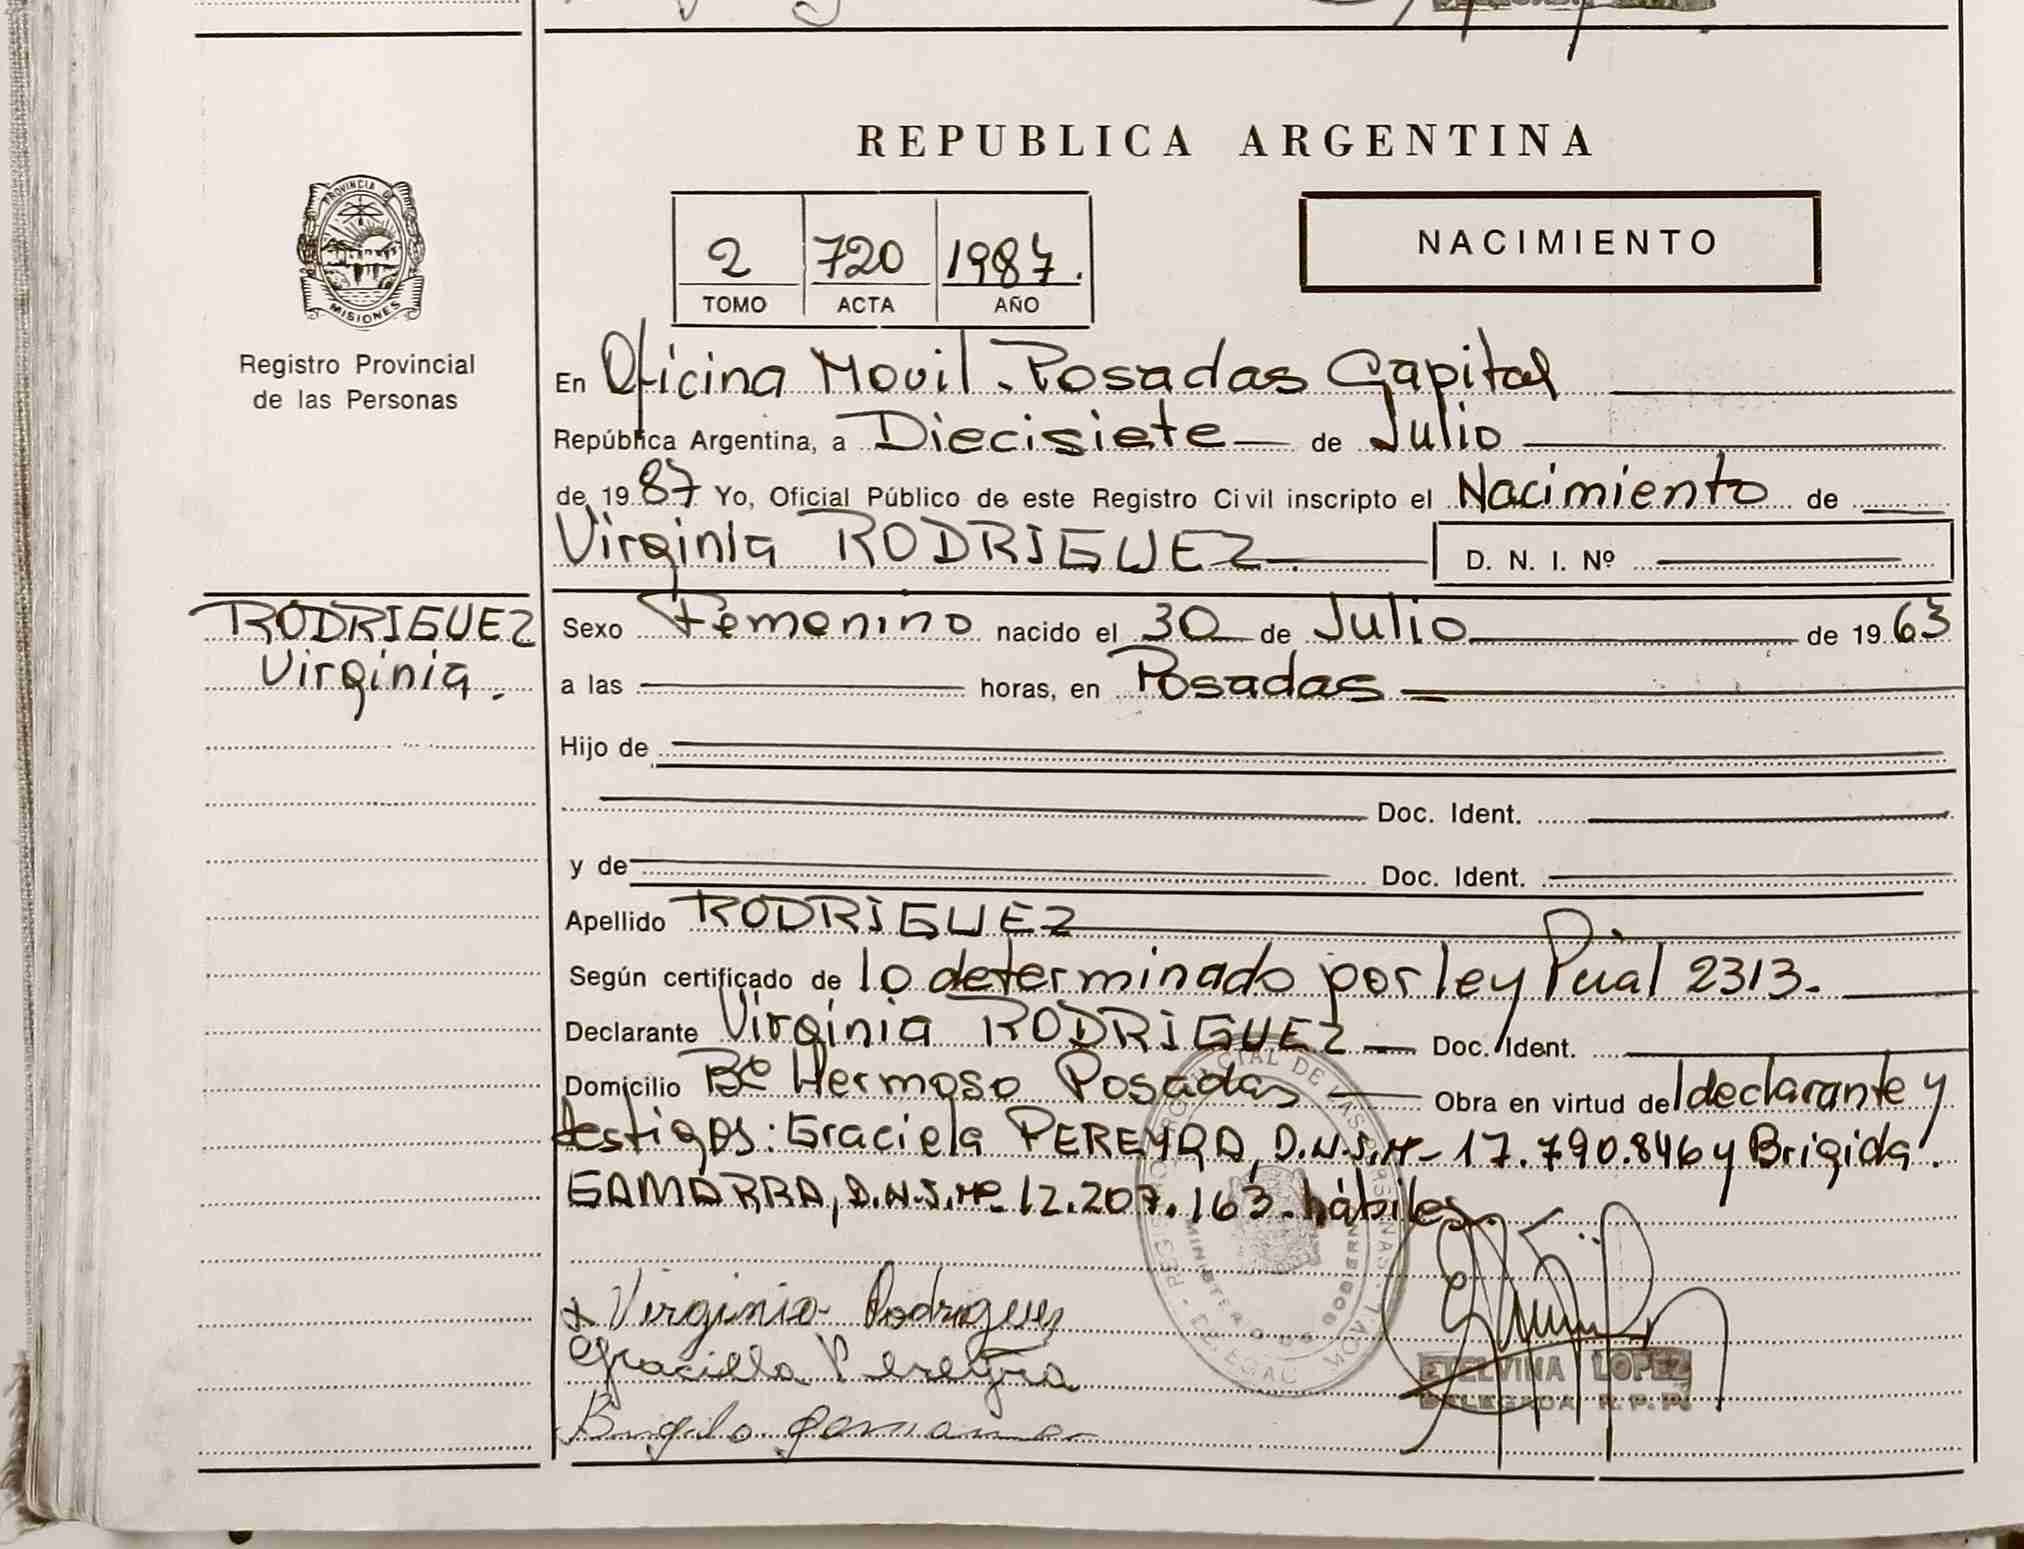 REPUBLICA ARGENTINA
PROVINCIA DE
MISIONES
Registro Provincial
de las Personas
2 720 1987.
TOMO ACTA AÑO
NACIMIENTO
En Oficina Movil. Posadas Capital
República Argentina, a Diecisiete de Julio
de 19 87 Yo, Oficial Público de este Registro Civil inscripto el Nacimiento de
Virginia RODRIGUEZ D. N. I. Nº
RODRIGUEZ
Virginia.
Sexo Femenino nacido el 30 de Julio de 19 63
a las horas, en Posadas
Hijo de
Doc. Ident.
y de Doc. Ident.
Apellido RODRIGUEZ
Según certificado de lo determinado por ley Pcial 2313.
Declarante Virginia RODRIGUEZ Doc. Ident.
Domicilio Bº Hermoso Posadas Obra en virtud del declarante y
testigos: Graciela PEREYRA, D.N.I.Nº 17.790.846 y Brigida
GAMARRA, D.N.I.Nº 12.207.163. hábiles.
x Virginia Rodriguez
Graciela Pereyra
Brigida Gamarra
ETELVINA LOPEZ
DELEGADA R.P.P.